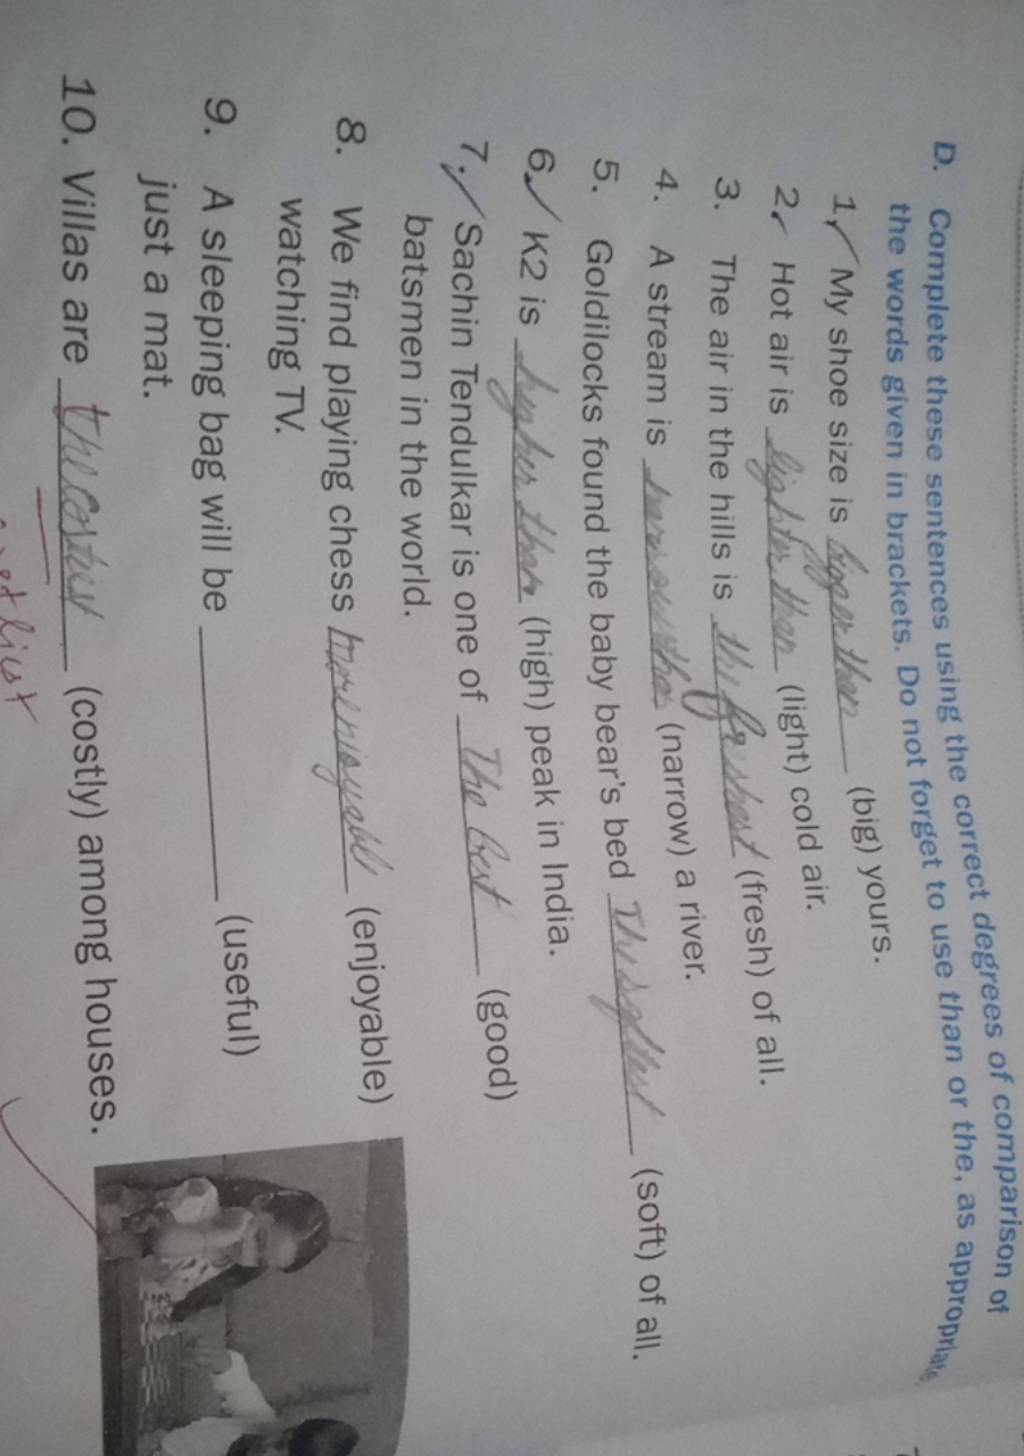 D. Complete these sentences using the correct degrees of comparison of
the words given in brackets. Do not forget to use than or the, as appropriate
1. My shoe size is bigger than (big) yours.
2. Hot air is lighter than (light) cold air.
3. The air in the hills is the freshest (fresh) of all.
4. A stream is (narrow) a river.
5. Goldilocks found the baby bear's bed The softest (soft) of all.
6. K2 is higher than (high) peak in India.
7. Sachin Tendulkar is one of The best (good)
batsmen in the world.
8. We find playing chess (enjoyable)
watching TV.
9. A sleeping bag will be (useful)
just a mat.
10. Villas are the costlist (costly) among houses.